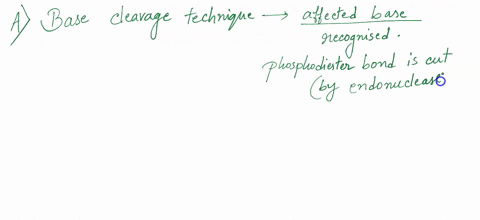 A) Base cleavage technique → affected base
recognised.
phosphodiester bond is cut
(by endonuclease